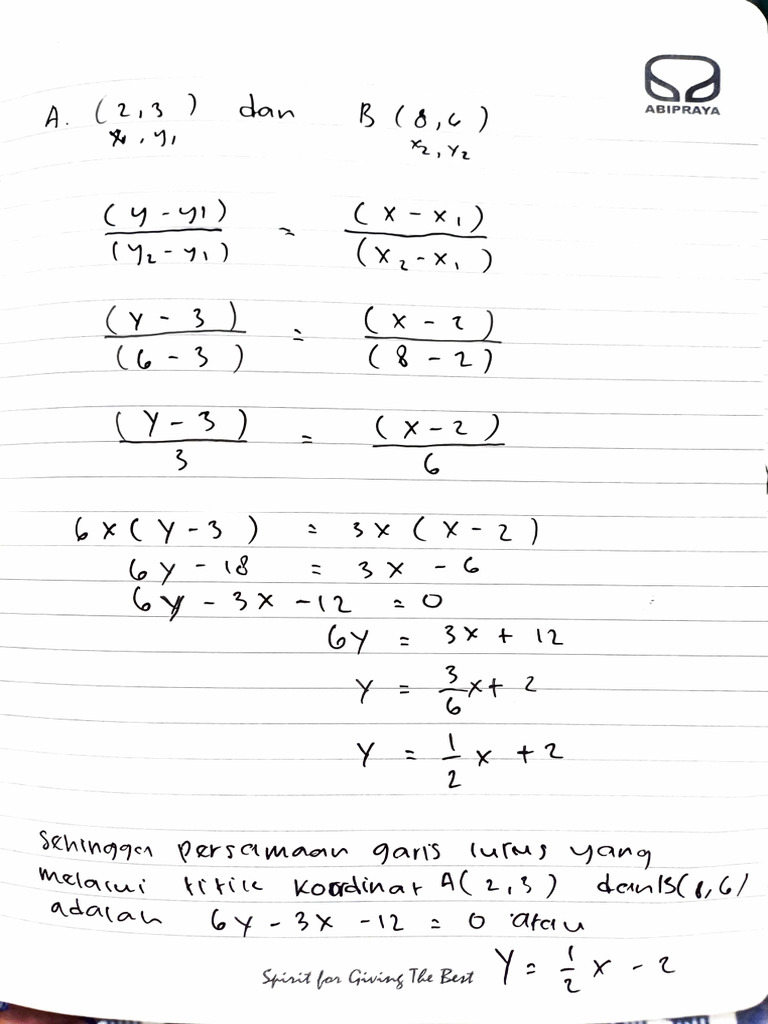 ABIPRAYA
A. (2,3) dan B (8,6)
x₁, y₁ x₂, y₂
(y - y1) / (y₂ - y₁) = (x - x₁) / (x₂ - x₁)
(y - 3) / (6 - 3) = (x - 2) / (8 - 2)
(y - 3) / 3 = (x - 2) / 6
6 x (y - 3) = 3 x (x - 2)
6y - 18 = 3x - 6
6y - 3x - 12 = 0
6y = 3x + 12
y = 3/6 x + 2
y = 1/2 x + 2
Sehingga persamaan garis lurus yang
melalui titik koordinat A(2,3) dan B(8,6)
adalah 6y - 3x - 12 = 0 atau
y = 1/2 x - 2
Spirit for Giving The Best